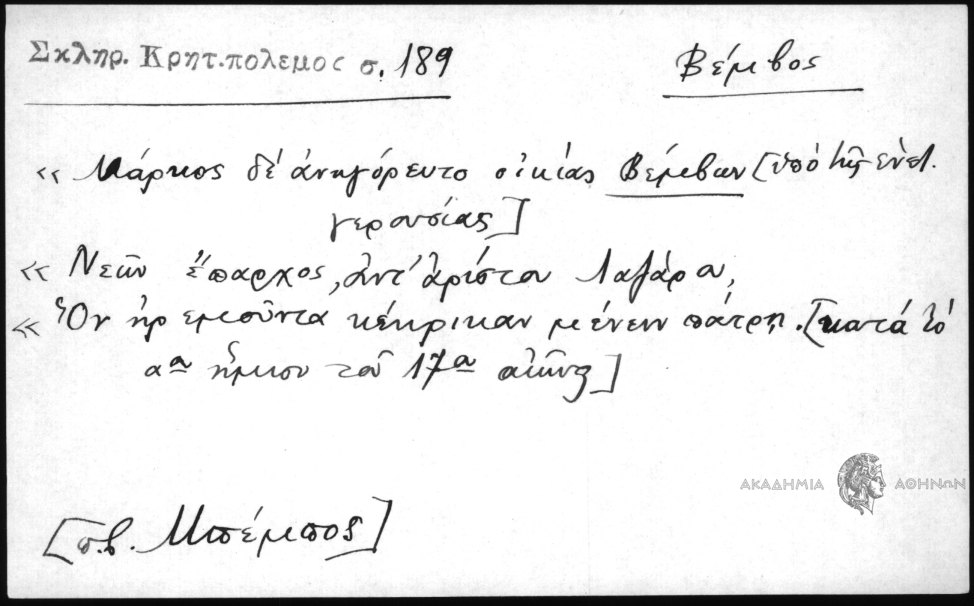 Σκληρ. Κρητ.πολεμος σ. 189
Βέμβος
« Μάρκος δέ ἀνηγόρευτο οἰκίας Βέμβων [ὑπό τῆς ἐνετ.
γερουσίας]
« Νεῶν ἔπαρχος, ἀντ' ἀρίστου Λαζάρου,
« Ὃν ἠρεμοῦντα κέκρικαν μένειν πάτρῃ. [κατά τό
αον ἥμισυ τοῦ 17ου αἰῶνος]
[π.β. Μπέμπος]
ΑΚΑΔΗΜΙΑ ΑΘΗΝΩΝ